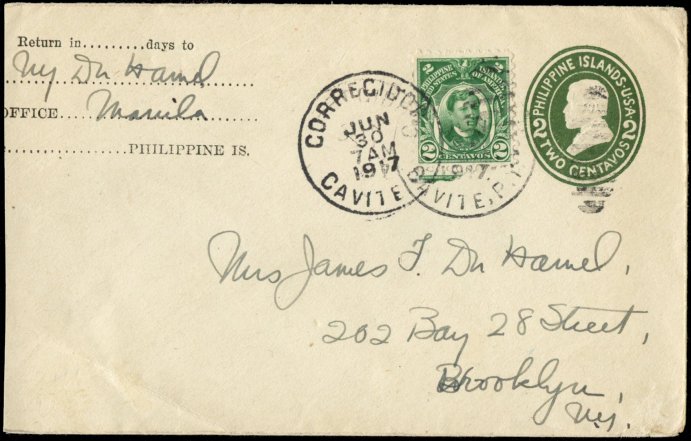 Return in.........days to
Wy Du Hamel
OFFICE. Manila
PHILIPPINE IS.
CORREGIDOR
JUN
30
7AM
1917
CAVITE
2 2
PHILIPPINE ISLANDS
UNITED STATES OF AMERICA
2 CENTAVOS 2
CAVITE, P.I.
PHILIPPINE ISLANDS·U·S·A·
2 2
TWO CENTAVOS
Mrs James F. Du Hamel,
202 Bay 28 Street,
Brooklyn,
N.Y.